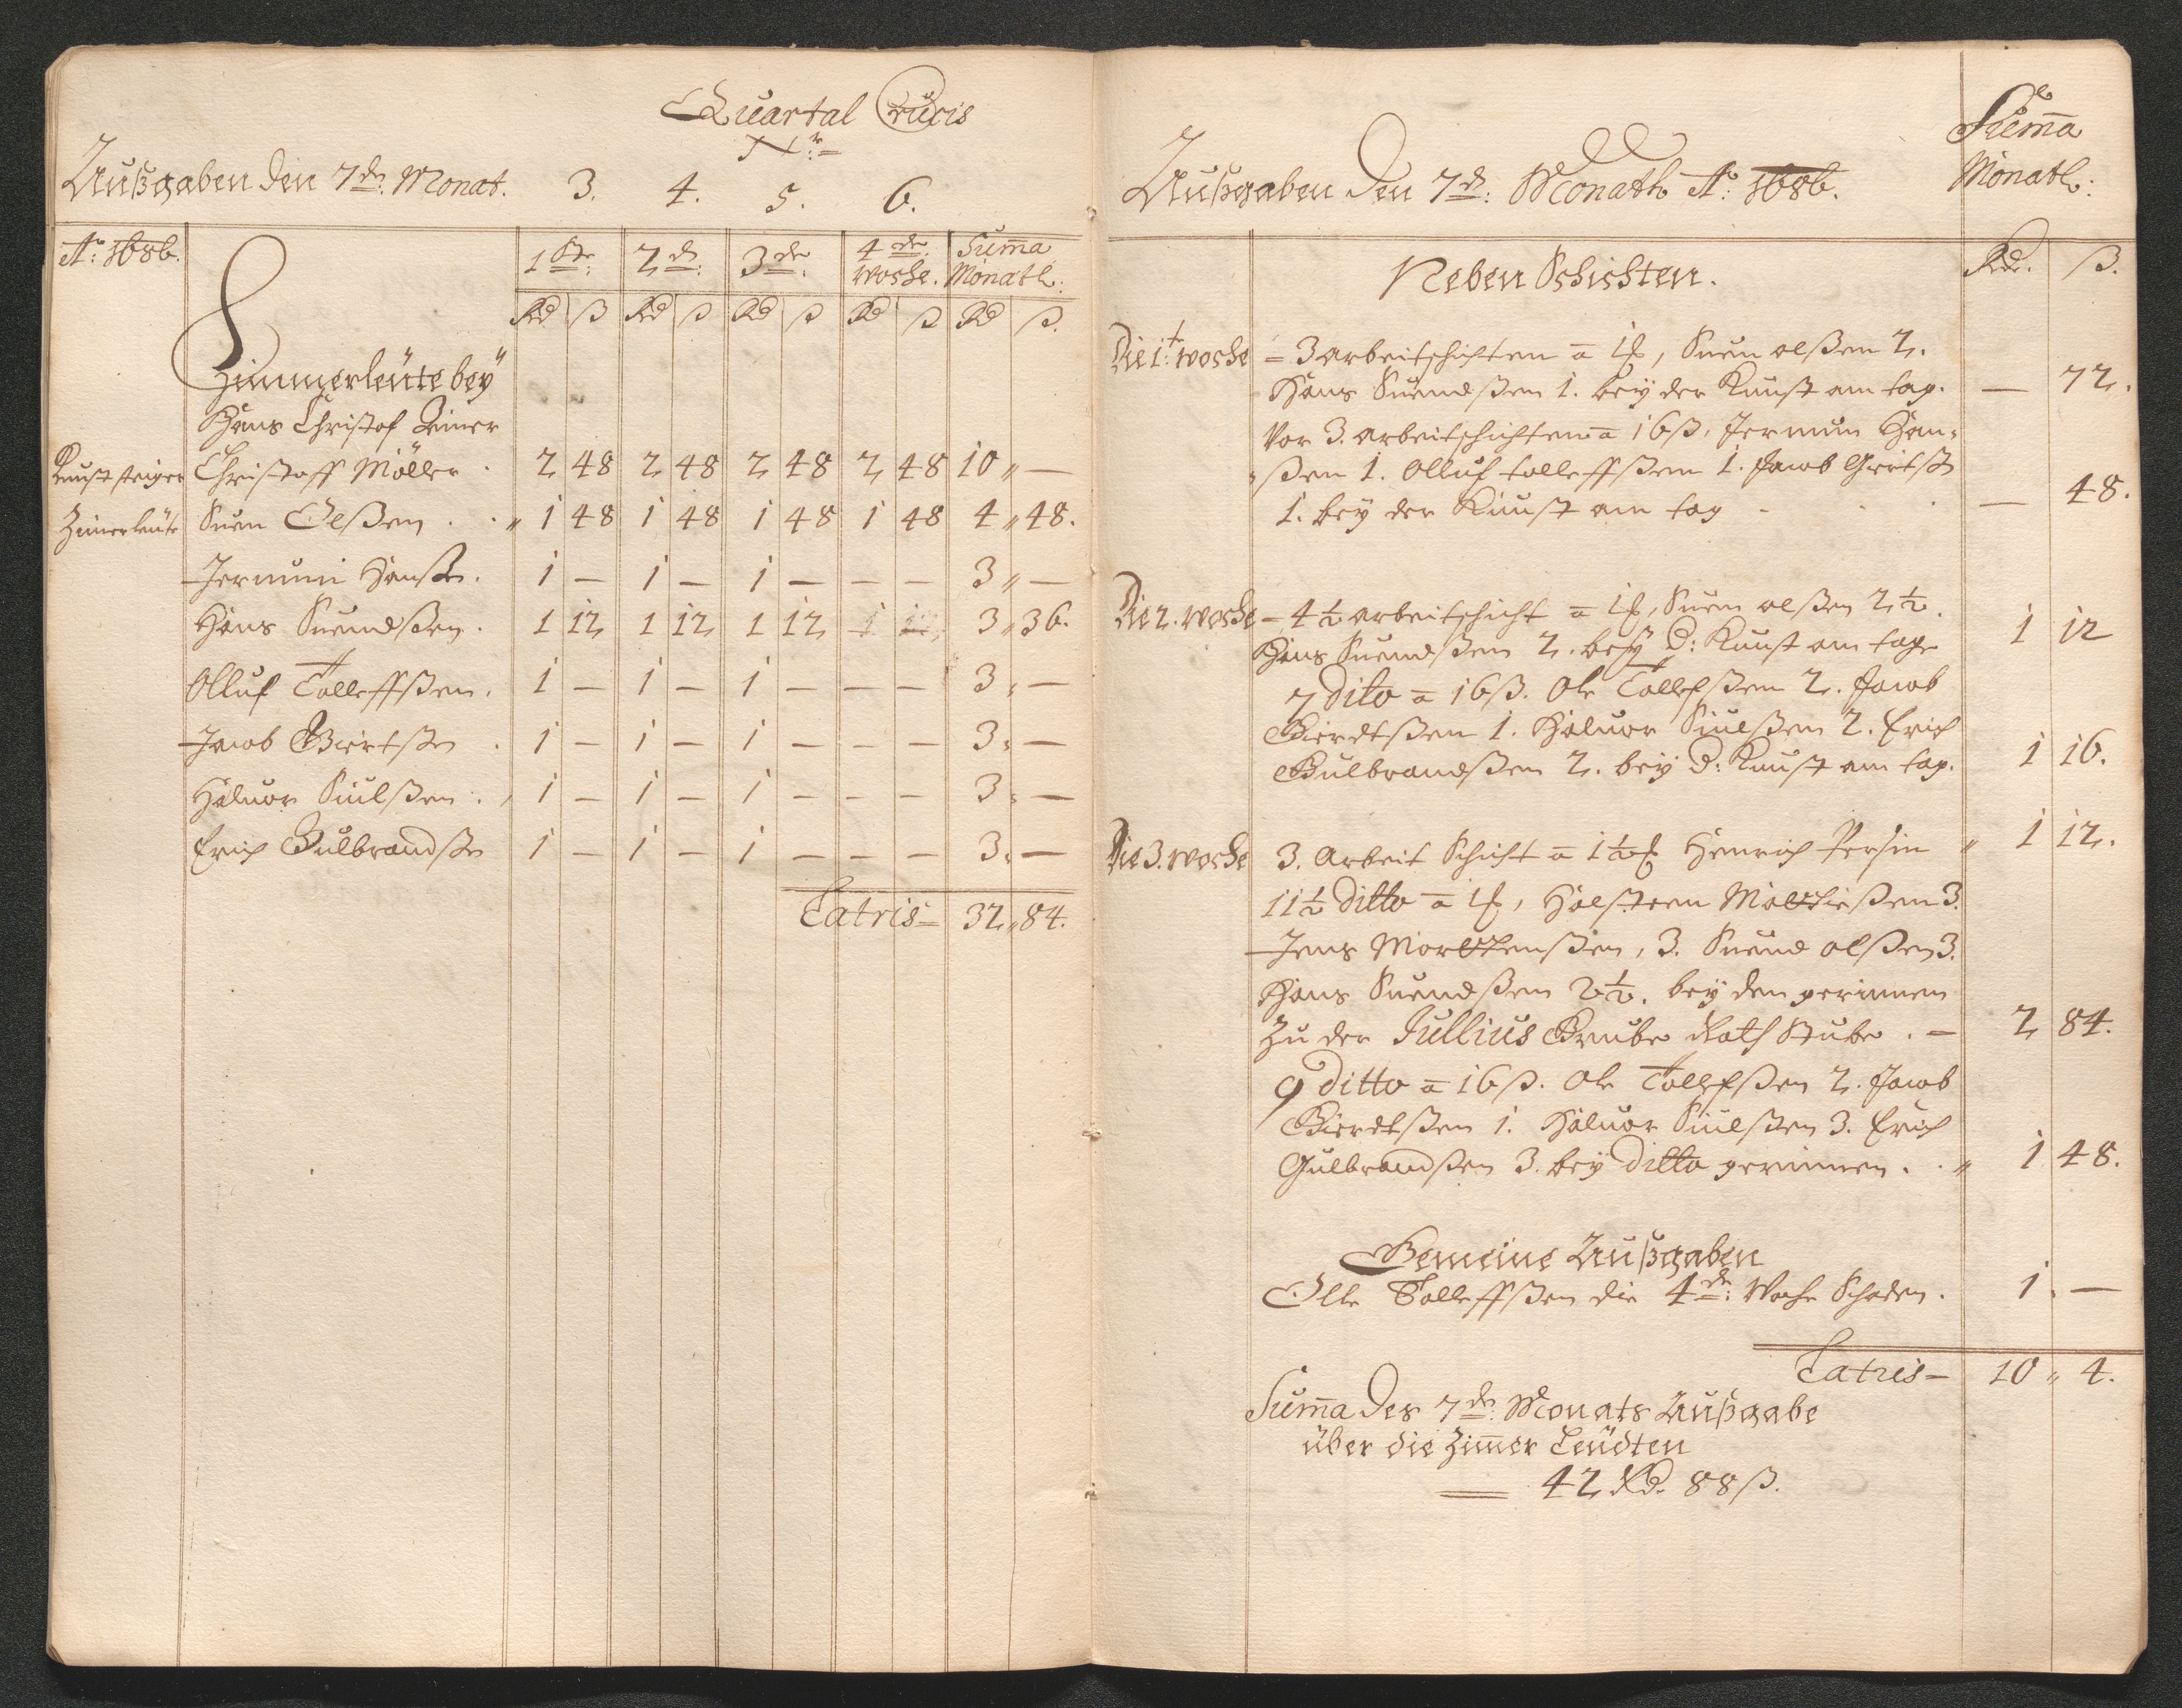 Quartal Crucis
Nr:
Außgaben den 7de: Monat. 3. 4. 5. 6.
Ao: 1686. 1ste: 2de: 3de: 4de: woche. Suma Monatl:
Rd ß Rd ß Rd ß Rd ß Rd ß.
Zimmerleüte beÿ
Hans Christof Zimer
Kunst steiger Christoff Möller . 2 48 2 48 2 48 2 48 10 " —
Zimerleüte Suen Olßen . . " 1 48 1 48 1 48 1 48 4 " 48.
Hanße. 1 — 1 — 1 — — — 3 " —
Hans Suendßen . 1 12 1 12 1 12 1 12 3 " 36.
Olluf Tolleffßen . 1 — 1 — 1 — — — 3 " —
Jacob Giertße . 1 — 1 — 1 — — — 3 " —
Haluor Siulßen . 1 — 1 — 1 — — — 3 " —
Erich Gulbrandße 1 — 1 — 1 — — — 3 " —
Latris= 32 " 84.
Suma
Außgaben den 7de: Monath Ao: 1686. Monatl:
Neben Schichten. Rdr. ß.
Die 1t: woche = 3 arbeitschichten a 1 , Suen olßen 2.
Hans Suendßen 1. beÿ der Kunst am tag. — 72.
Vor 3. arbeitschichten a 16ß, Han=
=ßen 1. Olluf tolleffßen 1. Jacob Girtß
1. beÿ der Kunst am tag . . — 48.
Die 2. woche = 4½ arbeitschicht a 1 , Suen olßen 2½.
Hans Suendßen 2. beÿ d: Kunst am tage 1 12
7 dito a 16ß. Ole Tollefßen 2. Jacob
Gierdtßen 1. Haluor Siulßen 2. Erich
Gulbrandßen 2. beÿ d: Kunst am tag. 1 16.
Die 3. woche 3. Arbeit Schicht a 1½ Henrich Persin " 1 12.
11½ ditto a 1 , Halsten Mattießen 3.
Jens Morttenßen, 3. Suend olßen 3.
Hans Suendßen 2½. beÿ den gerinnen
Zu der Jullius Grube Rath Stube . — 2 84.
9 ditto a 16ß. Ole Tollefßen 2. Jacob
Gierdtßen 1. Haluor Siulßen 3. Erich
Gulbrandßen 3. beÿ ditto gerinnen . . " 1 48.
Gemeine Außgaben
Olle Tolleffßen die 4de: Woche Schaden . 1. —
Latris= 10 " 4.
Suma des 7de: Monats Außgabe
über die Zimer Leüdten
= 42 Rd. 88ß.